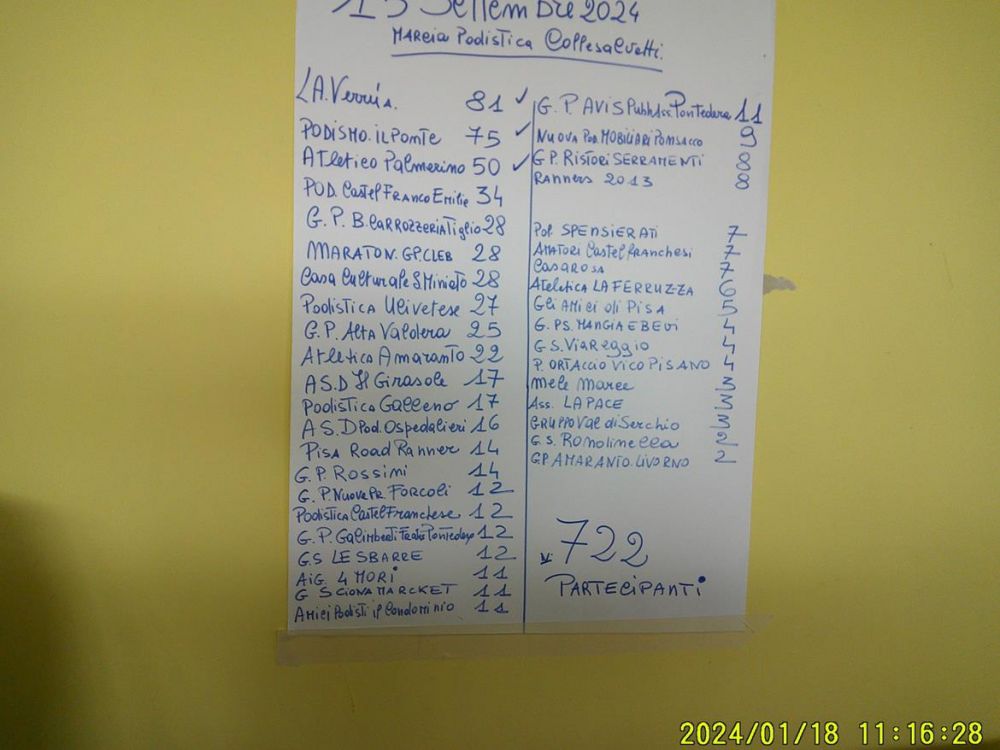 15 Settembre 2024
Marcia Podistica Collesalvetti.
LA. Verru's. 81 ✓
PODISMO. IL PONTE 75 ✓
ATletico Palmerino 50 ✓
POD. Castel Franco Emilie 34
G. P. B. CARROZZERIA Tiglio 28
MARATON. GP. CLEB 28
Casa Culturale S Miniato 28
Podistica Ulivetese 27
G. P. Alta Valdera 25
Atletica Amaranto 22
AS.D Il Girasole 17
Podistica Galleno 17
A S. D Pod. Ospedalieri 16
Pisa Road Ranner 14
G. P. Rossini 14
G. P. Nuova Pr. Forcoli 12
Podistica Castel Franchese 12
G. P. Galimberti Pontedera 12
GS LE SBARRE 12
AiG 4 MORI 11
G S CIONA MARCKET 11
Amici Podisti il Condominio 11
G. P. AVIS Pubb Ass. Pontedera 11
NUOVA POD. MOBILIARI PONSACCO 9
G P. RISTORI SERRAMENTI 8
Ranners 2013 8
Pol SPENSIERATI 7
AMATORI Castel franchesi 7
CASAROSA 7
Atletica LA FERRUZZA 6
Gli AMICI di PISA 5
G. PS. MANGIA E BEVI 4
G S. Viareggio 4
P. ORTACCIO VICO PISANO 4
Mele Marce 3
Ass. LA PACE 3
GRUPPO Val di Serchio 3
G. S. Romolinella 2
G.P. AMARANTO. LIVORNO 2
722
PARTECIPANTI
2024/01/18 11:16:28